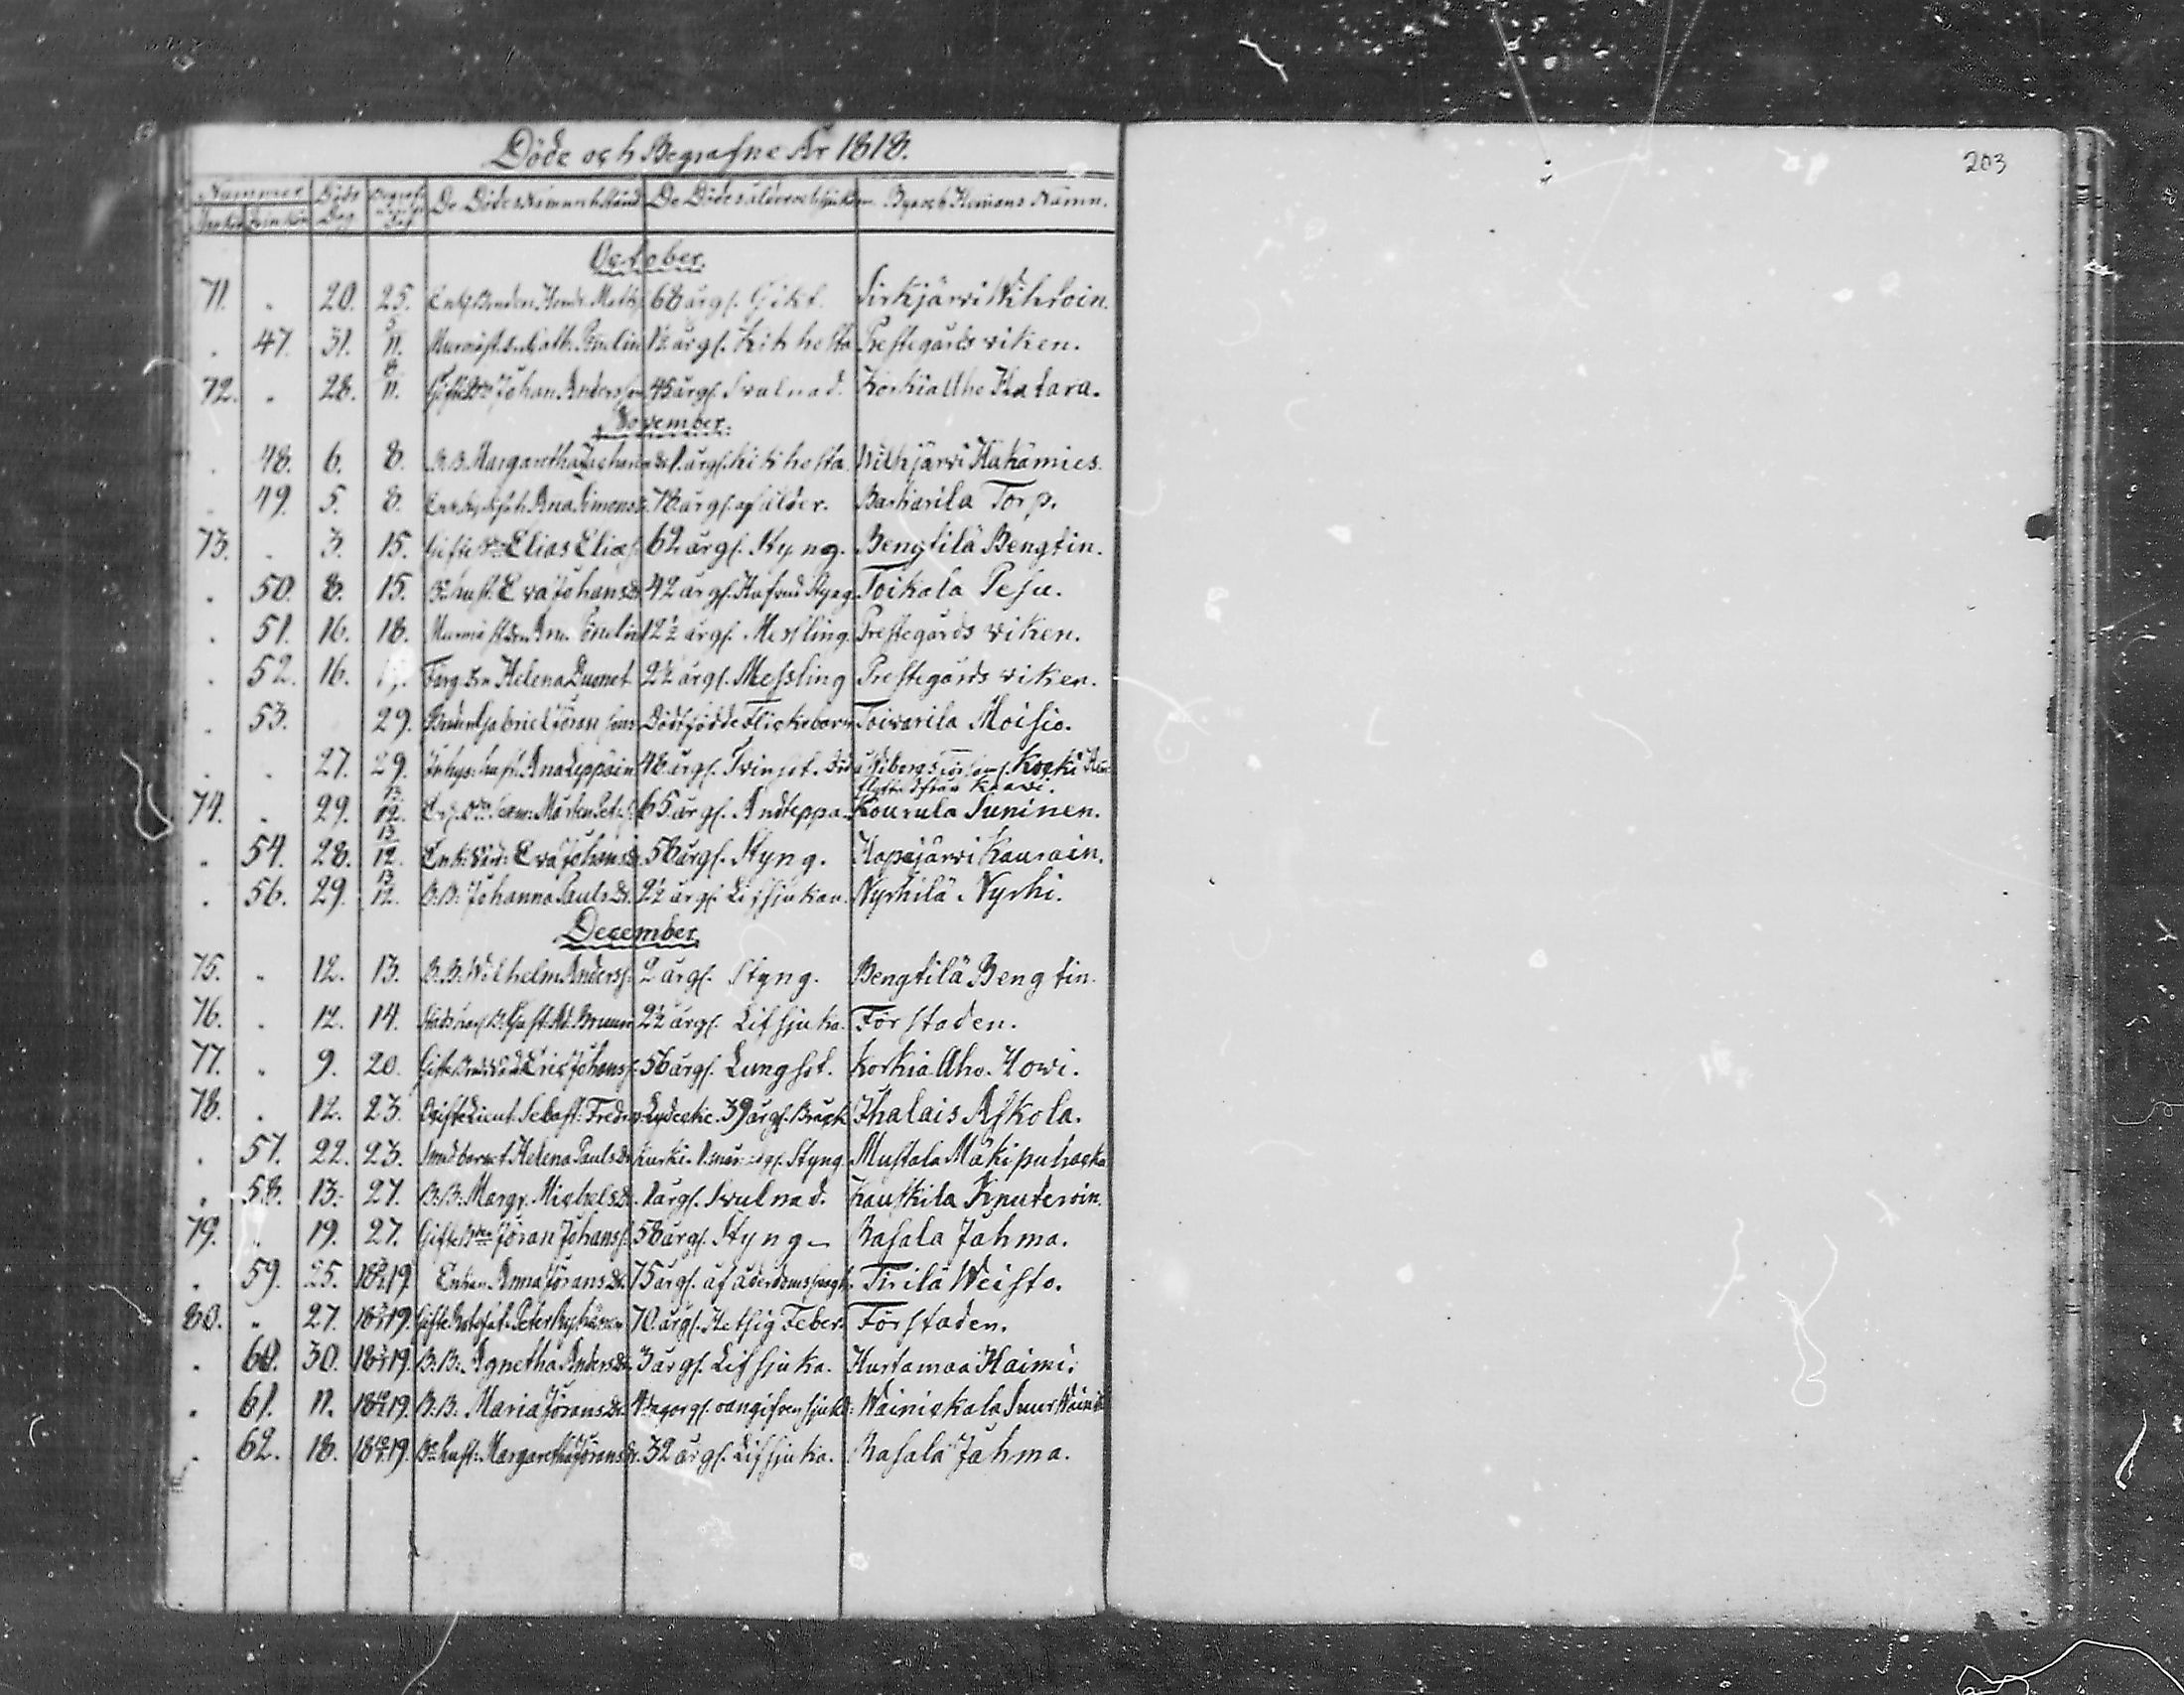 203
Döde och Begrafne År 1818.
Nummer Döds Dag Begrafn: Dag De Dödes Namn och Stånd De Dödes ålder och Sjukdom Byar och Hemans Namn.
Mankön Qvinkön
October.
71. " 20. 25. Enkl. Bonden Hendr. Matts 68 årgl. Gikt. Sirkjärvi Wihtoin.
. 47. 31. 5/11. Murmäst. d. Cath. Römelin 1½ årgl. Kikhosta Prestegårdsviken.
72. " 28. 8/11. Gifte Bdn Johan Andersson 45 årgl. Svulnad. Korkia Aho Hatara.
November.
. 48. 6. 8. B.B. Margaretha Zachari dr 1. årgl. kikhosta. Hilkjärvi Hakämies.
. 49. 5. 8. Ana Simonsdr. 78 årgl. af ålder. Parkarila Torp.
73. . 3. 15. Gifte Bdn Elias Eliæs: 62 årgl. Styng. Bengtilä Bengtin.
. 50. 8. 15. Bd: hust. Eva Johansdr. 42 årgl. Hafvand Styng Toikala Pesu.
. 51. 16. 18. Murmäst. 12½ årgl. Messling. Prestegårdsviken.
. 52. 16. Helena 2½ årgl. Messling Prestegårdsviken.
. 53. 29. Gabriel Jöran sons Dödfödde Flickebarn Toivarila Moisio.
. . 27. 29. Inhys: hust. Ana Leppäin 48 årgl. Tvinsot. död i Wiborgs Kocki
flyttad från Klawi.
74. . 29. 13/12. Mårten Peters: 65 årgl. Andteppa. Kourula Suninen.
. 54. 28. 13/12. Enk: Värd: Eva Johansdr. 56 årgl. Styng. Hapajärvi Kaurain.
. 56. 29. 13/12. B:B: Johanna Paulsdr. 2½ årgl. Lifsjukan. Nyrhilä Nyrhi.
December.
75. " 12. 13. B.B. Wilhelm Anders: 2 årgl. Styng. Bengtilä Bengtin.
76. . 12. 14. Gust. Ad. Bruun 2½ årgl. Lifsjuka. Förstaden.
77. " 9. 20. Gifte Eric Johans: 56 årgl. Lungsot. Korkia Aho. Howi.
78. . 12. 23. Gifte Lieut. Sebast: Fredr: Lydeckie. 39 årgl. Bråck Ihalais Askola.
. 57. 22. 23. Smedbarnet Helena Paulsdr. Kurki. 1. mån: gl. Styng Mustala Mäkipuhacka
. 58. 13. 27. B:B: Margr. Michelsdr. 1 årgl. Svulnad. Kauskila Knuteroin.
79. " 19. 27. Gifte Bdn Jöran Johans: 58 årgl. Styng. Rasala Jahma.
. 59. 25. 18 19. Enkan Anna Jöransdr. 75 årgl. af åderdoms svagh. Tirilä Weisto.
80. " 27. 18 19. Gifte Peter 70. årgl. Hetsig Feber. Förstaden.
. 60. 30. 18 19. B:B: Agnetha Andersdr. 3 årgl. Lifsjuka. Hurtamaa Haimi.
. 61. 11. 18 19. B:B: Maria Jöransdr. dagargl. oangifven sjukd: Wainickala Suur
. 62. 18. 18 19. Bd: hust: Margaretha Jöransdr. 32 årgl. Lifsjuka. Rasala Jahma.